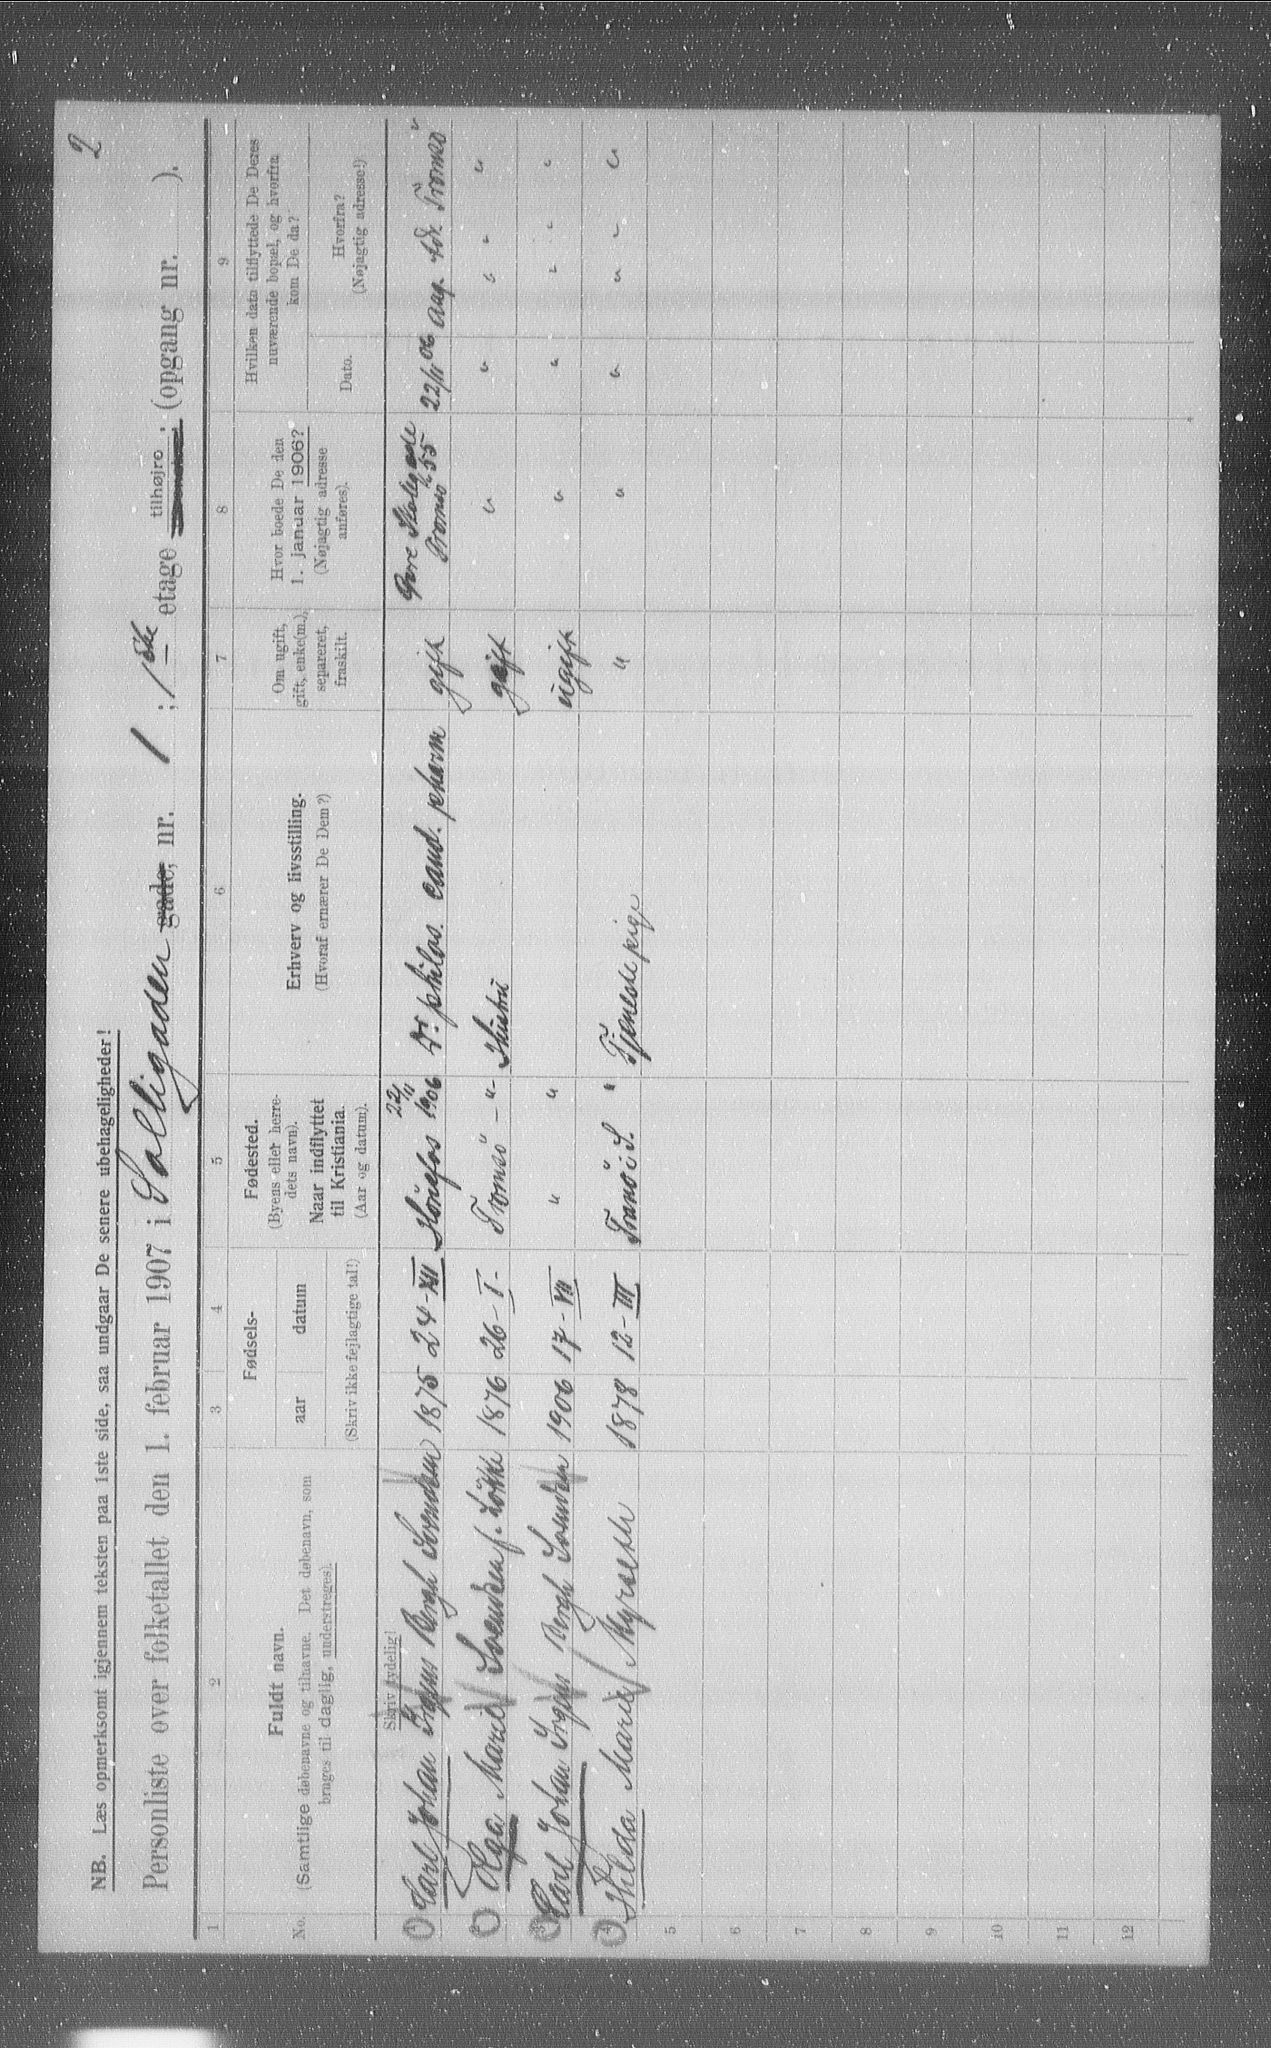 2
NB. Læs opmerksomt igjennem teksten paa 1ste side, saa undgaar De senere ubehageligheder!
Personliste over folketallet den 1. februar 1907 i Solligaden gade, nr. 1 ; 1ste etage tilhøjre ; (opgang nr. ).
1 2 3 4 5 6 7 8 9
No. Fuldt navn. (Samtlige døbenavne og tilnavne. Det døbenavn, som bruges til daglig, understreges). Skriv tydelig!
Fødsels- aar datum (Skriv ikke fejlagtige tal!)
Fødested. (Byens eller herredets navn). Naar indflyttet til Kristiania. (Aar og datum).
Erhverv og livsstilling. (Hvoraf ernærer De Dem?)
Om ugift, gift, enke(m.), separeret, fraskilt.
Hvor boede De den 1. januar 1906? (Nøjagtig adresse anføres).
Hvilken dato tilflyttede De Deres nuværende bopæl, og hvorfra kom De da? Dato. Hvorfra? (Nøjagtig adresse!)
1 Carl Johan Bergh Svendsen 1875 24-XII Hönefos 22/11 1906 Dr. philos. cand. pharm gift Skolegade 55 Tromsö 22/11 06 Tromsö
2 Olga Marie Svendsen f. 1876 26-I- Tromsö -"- Hustru gift " " " " "
3 Carl Johan Bergh Svendsen 1906 17-VII " " ugift " " " " "
4 Hilda Marie Myrseth 1878 12-III Tranö i S. " Tjenestepige " " " " " "
5
6
7
8
9
10
11
12